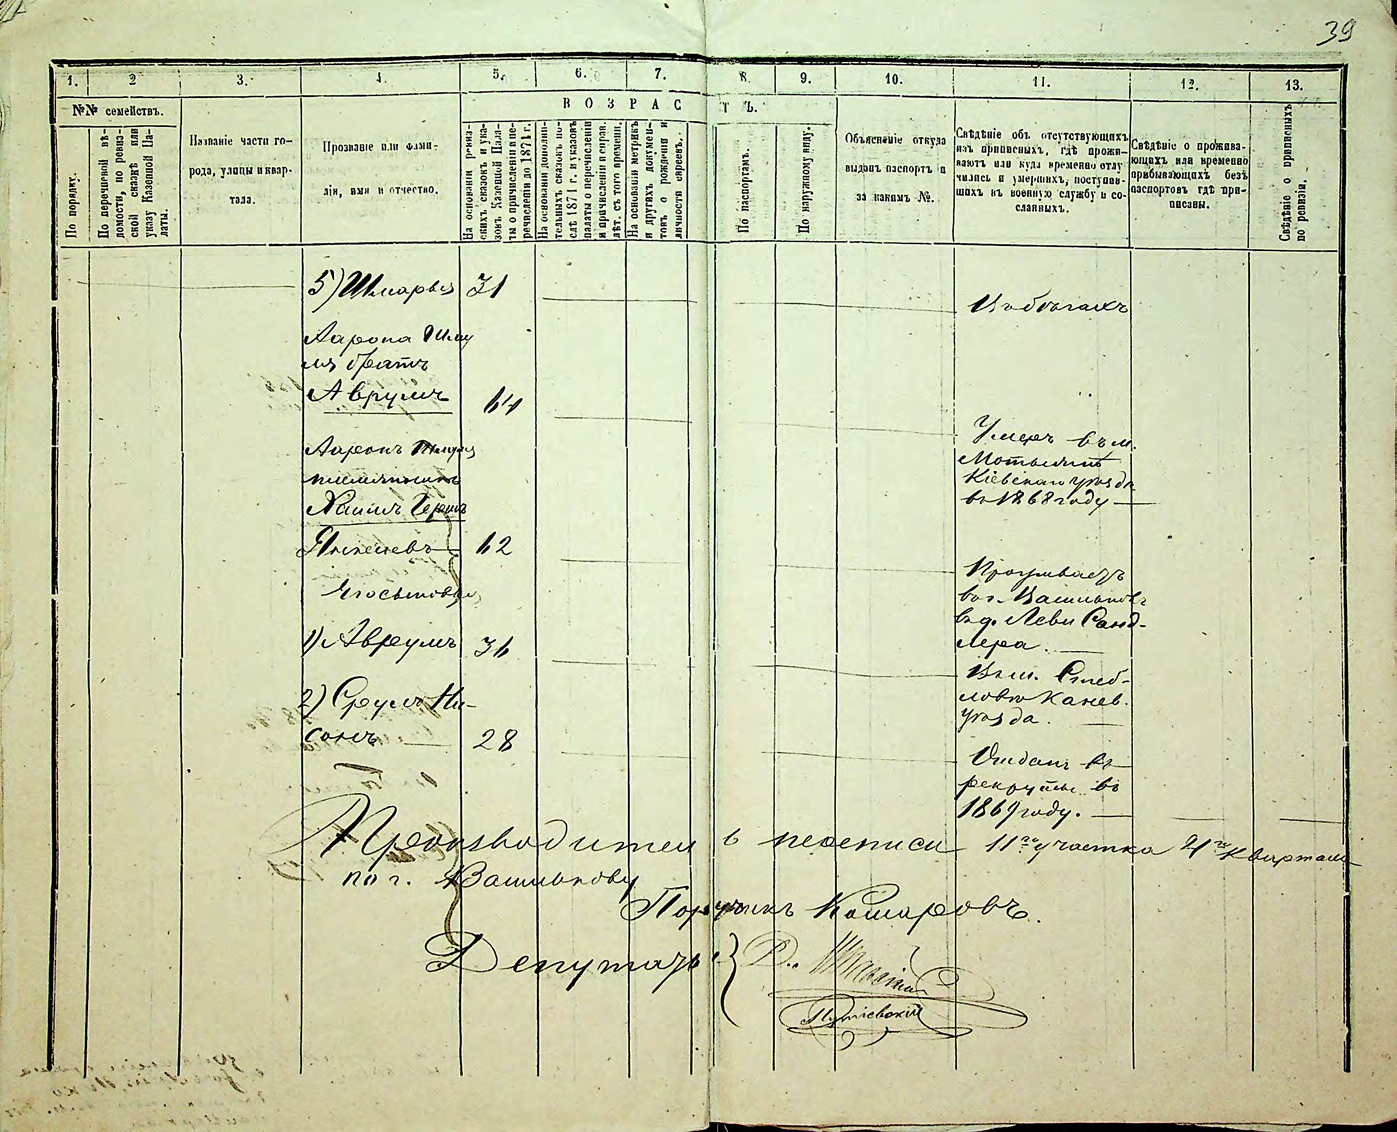 39
1. 2 3. 4. 5. 6. 7. 8. 9. 10. 11. 12. 13.
№№ семействъ.
В О З Р А С Т Ъ.
По порядку.
По перечневой вѣ-
домости, по ревиз-
ской сказкѣ или
указу Казенной Па-
латы.
Названіе части го-
рода, улицы и квар-
тала.
Прозваніе или фами-
лія, имя и отчество.
На основаніи ревиз-
скихъ сказокъ и ука-
зовъ Казенной Пала-
ты о причисленіи и пе-
речисленіи до 1871 г.
На основаніи дополни-
тельныхъ сказокъ по-
слѣ 1871 г. и указовъ
палаты о перечисленіи
и причисленіи и справ.
лѣт. съ того времени.
На основаніи метрикъ
и другихъ докумен-
товъ о рожденіи и
личности евреевъ.
По паспортамъ.
По наружному виду.
Объясненіе откуда
выданъ паспортъ и
за какимъ №.
Свѣдѣніе объ отсутствующихъ
изъ приписныхъ, гдѣ прожи-
ваютъ или куда временно отлу-
чились и умершихъ, поступив-
шихъ въ военную службу и со-
сланныхъ.
Свѣдѣніе о прожива-
ющихъ или временно
прибывающихъ безъ
паспортовъ гдѣ при-
писаны.
Свѣдѣніе о приписныхъ
по ревизіи.
5) Шмарья 31
Въ бѣгахъ
Аарона Шму
ля братъ
Аврумъ 64
Умеръ въ м.
Кіевскаго уѣзда
въ 1868 году
Ааронъ Шмуля
племянникъ
Хаимъ Герш
Янкелевъ 62
Проживаетъ
въ г. Васильковѣ
въ д. Леви Санд-
лера.
1) Аврумъ 36
Въ м. Стеб-
ловѣ Канев.
уѣзда.
2) Срулъ Ни-
сонъ 28
Отданъ въ
рекруты въ
1869 году.
Производитель переписи 11го участка 4го квартала
по г. Василькову
Поручикъ Комаровъ.
Депутаты